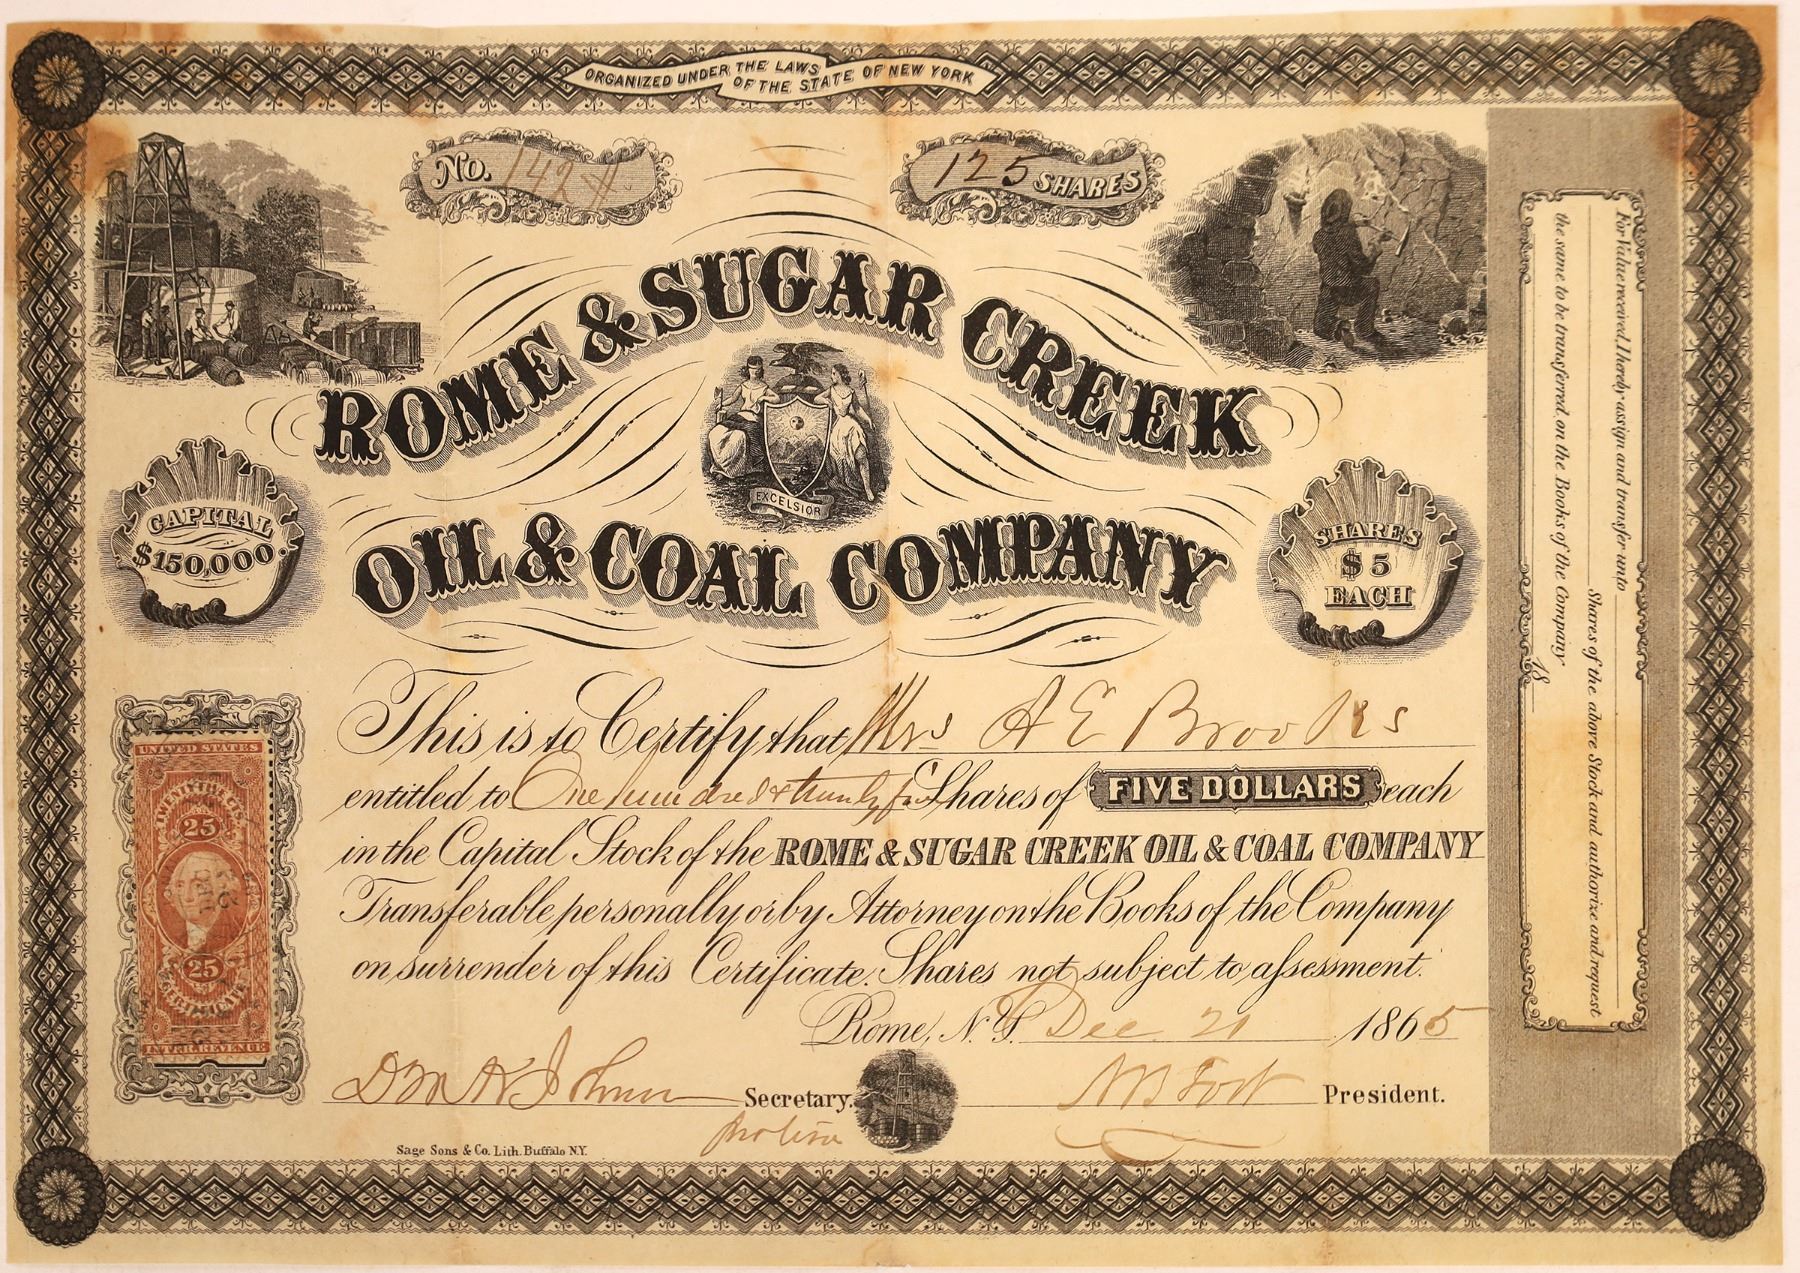 ORGANIZED UNDER THE LAWS OF THE STATE OF NEW YORK
No. 142
125 SHARES
ROME & SUGAR CREEK
EXCELSIOR
OIL & COAL COMPANY
CAPITAL
$150,000.
SHARES
$5
EACH
This is to Certify that Mrs A E Brooks
entitled to One hundred & twenty five Shares of FIVE DOLLARS each
in the Capital Stock of the ROME & SUGAR CREEK OIL & COAL COMPANY
Transferable personally or by Attorney on the Books of the Company
on surrender of this Certificate. Shares not subject to assessment.
Rome, N.Y. Dec. 21 1865
Secretary.
protem
President.
Sage Sons & Co. Lith. Buffalo N.Y.
UNITED STATES
TWENTY-FIVE CTS.
25
DEC
25
CERTIFICATE
INTER. REVENUE
For Value received, I hereby assign and transfer unto
Shares of the above Stock and authorize and request
the same to be transferred on the Books of the Company
18